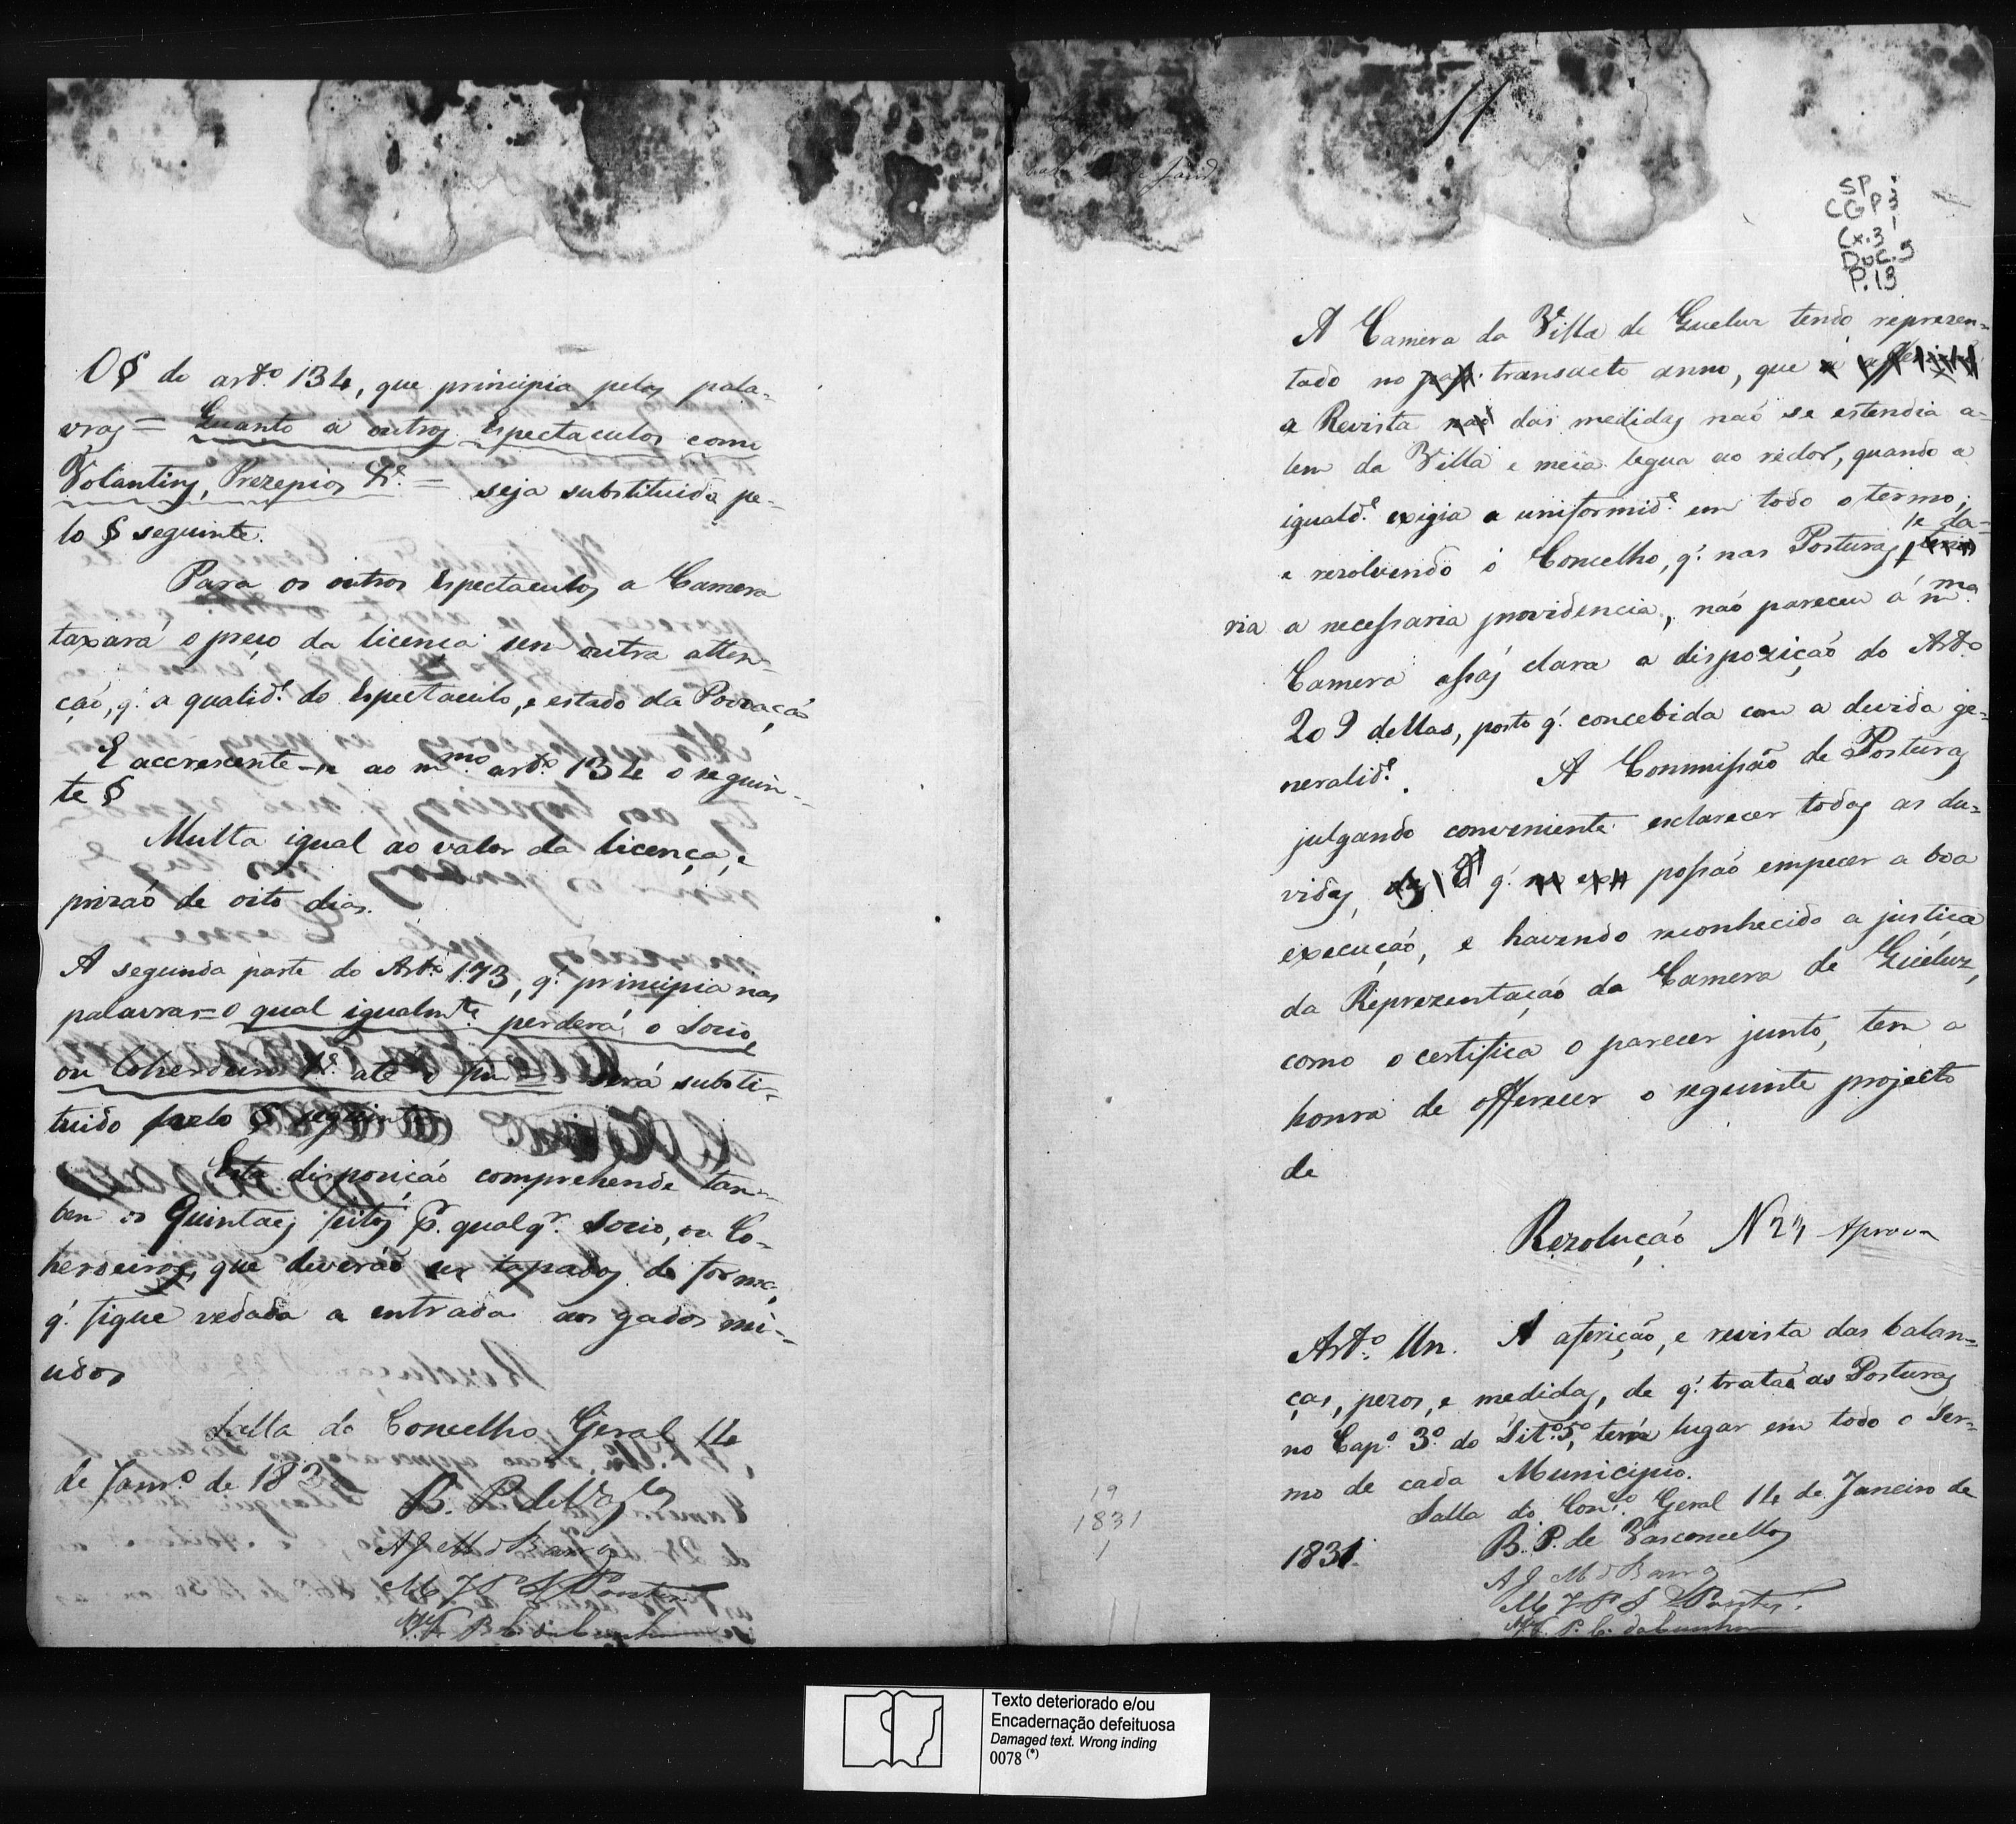 O § do artº. 134, que principia pelas pala-
vras = Quanto a outros Espectaculos como
Volantins, Prezepios &c. = seja substituido pe-
lo § seguinte.
Para os outros Espectaculos a Camera
taxará o preço da licença sem outra atten-
ção, q. a qualidᵉ. do Espectaculo, e estado da Povoação
E accrescente-se ao mᵐᵒ artº. 134 o seguin-
te §
Multa igual ao valor da licença, e
prizaõ de oito dias.
A segunda parte do Artº. 173, q. principia nas
palavras = o qual igualmᵗᵉ perderá o Socio,
ou Coherdeiro &c. até o fim = será substi-
tuido pelo § seguinte
Esta dispoziçaõ comprehende tam-
bem os Quintaes feitos P. qualqʳ. Socio, ou Co-
herdeiros, que deveráõ ser tapados de forma,
q. fique vedada a entrada aos gados mi-
udos
Salla do Concelho Geral 14
de Janrº. de 183
B. P. de Vᶜˡᵒˢ
A J M d Barros
M J P S Pontes
P. C. da Cunha
11
SP
CGP 3
Cx. 31
Doc. 5
P. 13
A Camera da Vᵉilla de Queluz tendo reprezen-
tado no transacto anno, que
a Revista das medidas naõ se estendia a-
lem da Villa e meia legua ao redor, quando a
igualdᵉ. exigia a uniformidᵉ. em todo o termo;
e rezolvendo o Concelho, q. nas Posturas se da-
ria a necessaria providencia, naõ pareceu á mᵐᵃ
Camera assás clara a dispoziçaõ do Artº
209 dellas, posto q. concebida com a devida ge-
neralidᵉ. A Commissaõ de Posturas
julgando conveniente esclarecer todas as du-
vidas, q. possaõ empecer a boa
execuçaõ, e havendo reconhecido a justiça
da Reprezentaçaõ da Camera de Queluz,
como o certifica o parecer junto, tem a
honra de offerecer o seguinte projecto
de
Rezoluçaõ N 24 Aprova
Artº. Un. A afericaõ, e revista das balan-
ças, pezos, e medidas, de q. trataõ as Posturas
no Capº 3º do Titº 5º, terá lugar em todo o Ter-
mo de cada Municipio.
Salla do Conᶜº. Geral 14 de Janeiro de
1831.
B. P. de Vasconcellos
A J M d Barros
M J P S Pontes
P. C. da Cunha
19
1831
1
Texto deteriorado e/ou
Encadernação defeituosa
Damaged text. Wrong inding
0078 (*)